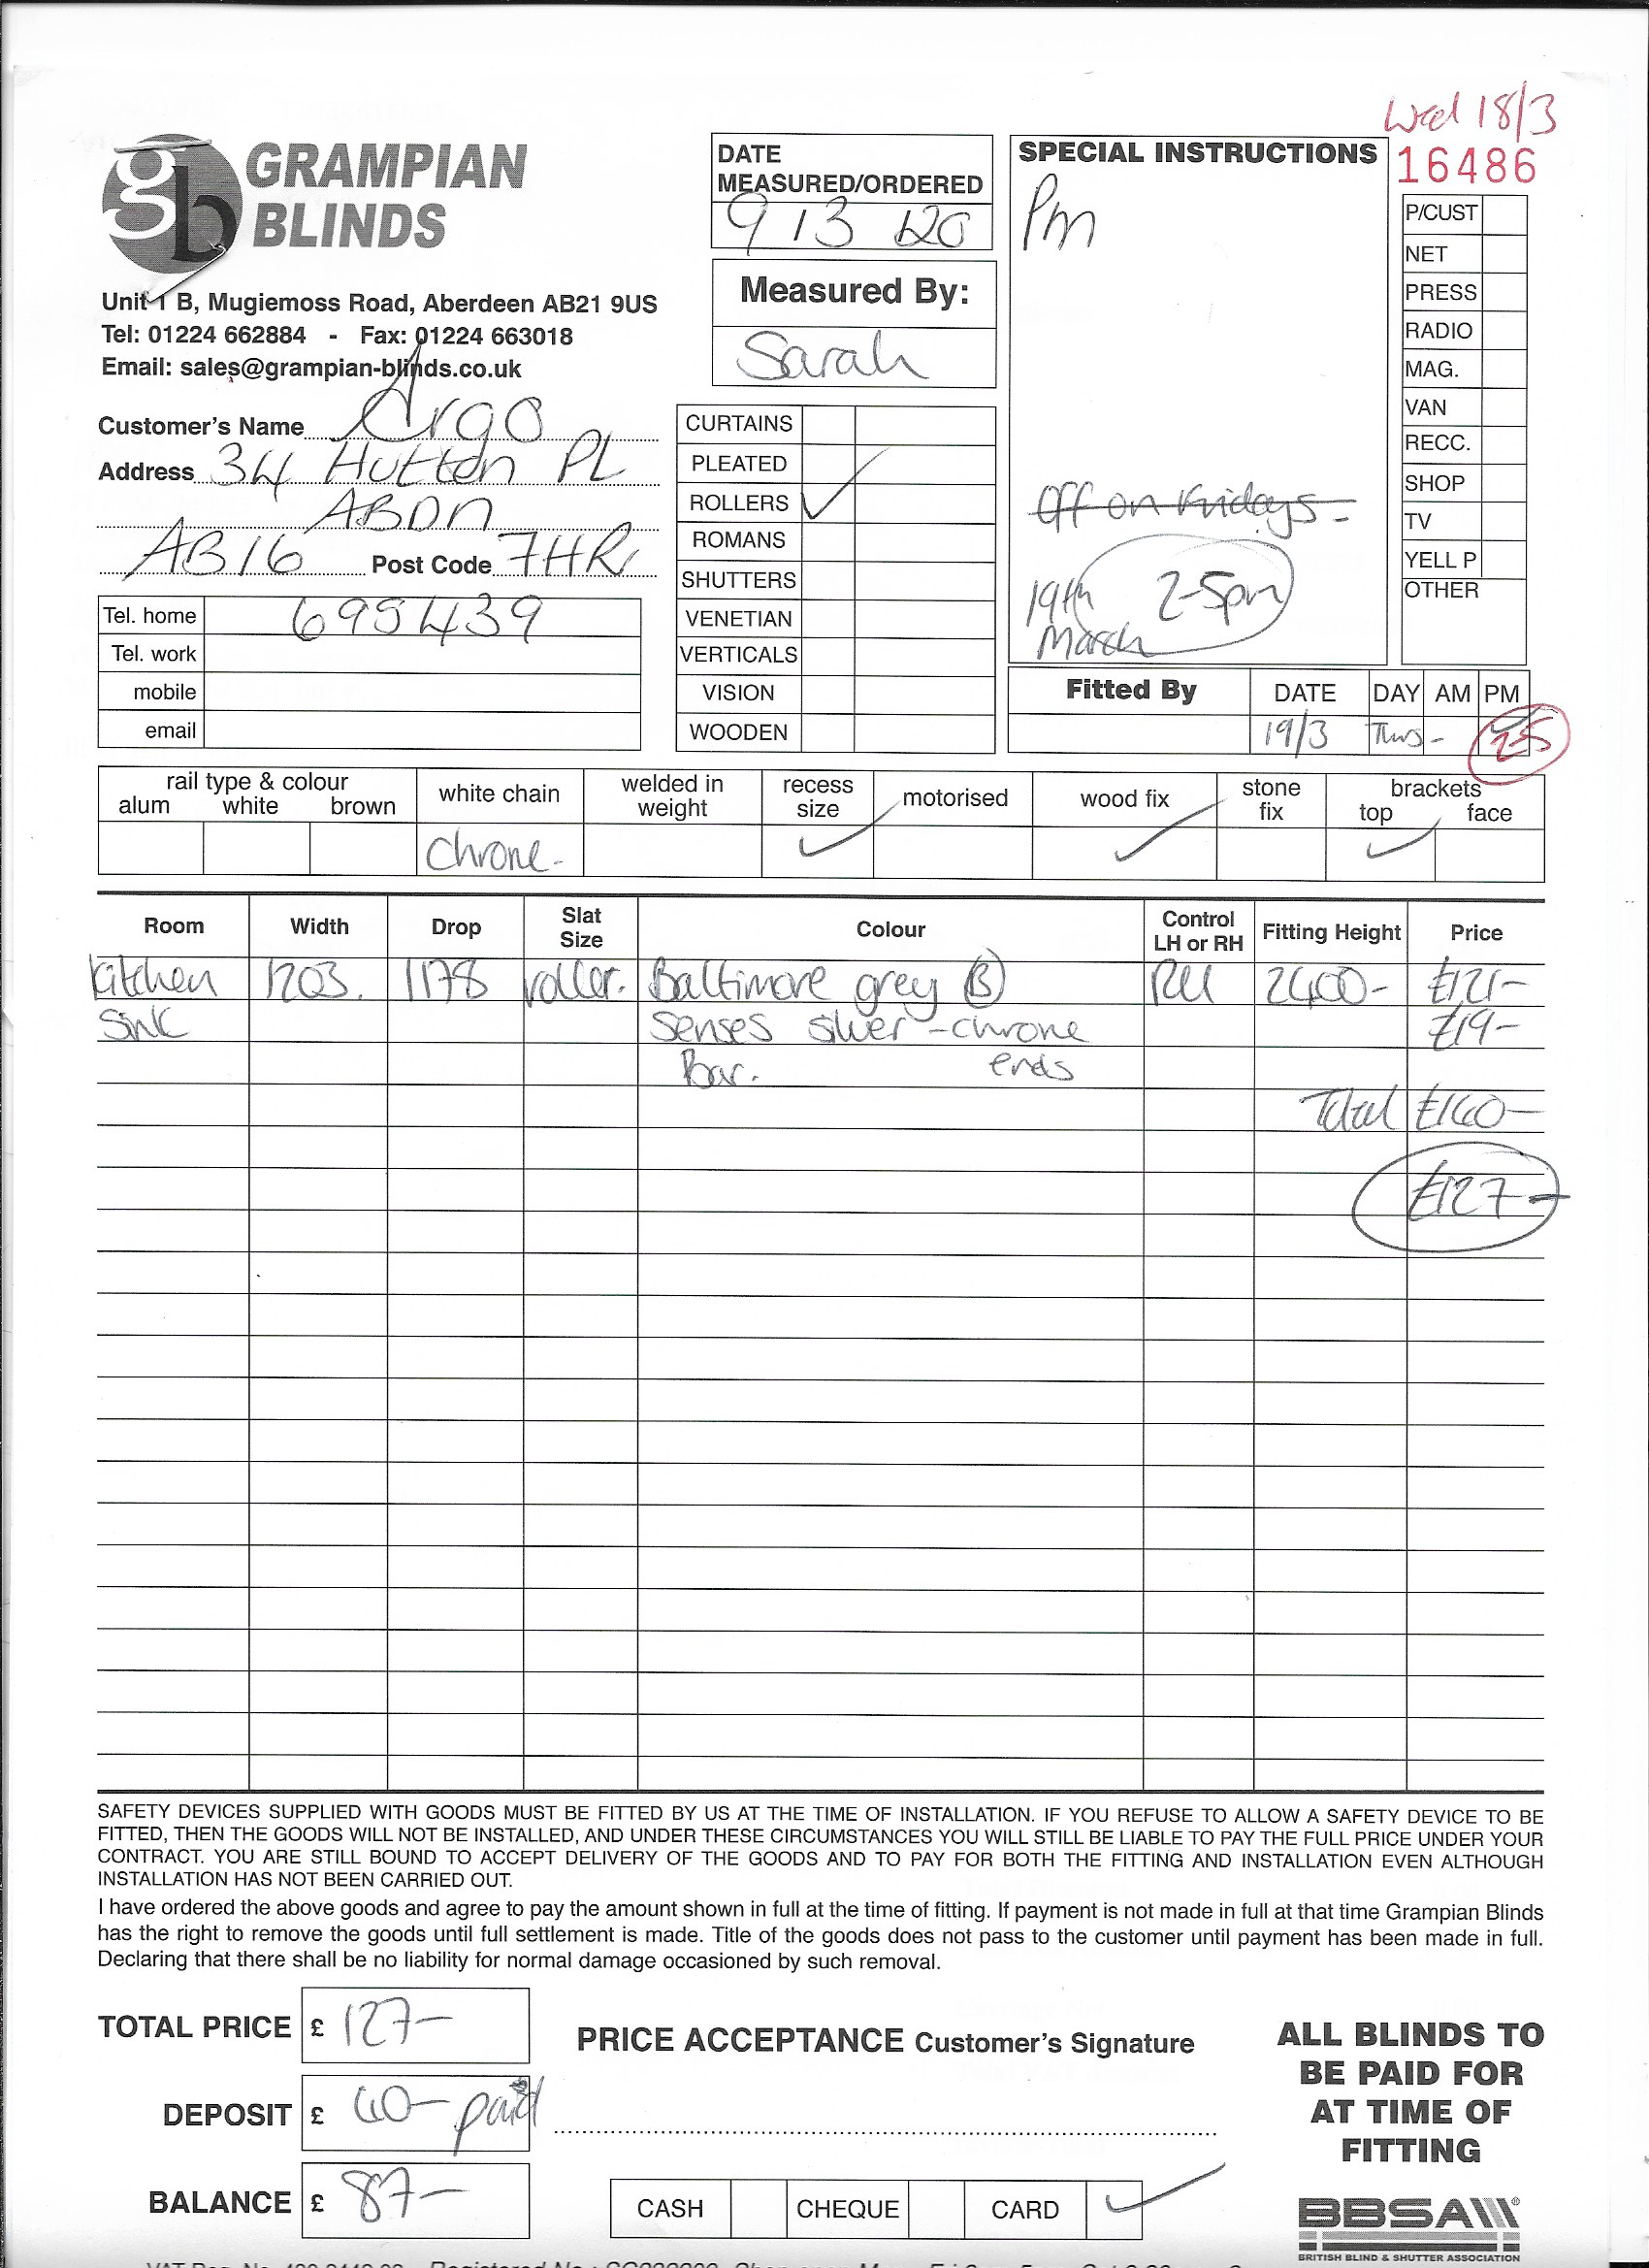 Wed 18/3
16486
gb GRAMPIAN
BLINDS
Unit 1 B, Mugiemoss Road, Aberdeen AB21 9US
Tel: 01224 662884 - Fax: 01224 663018
Email: sales@grampian-blinds.co.uk
Customer's Name Argo
Address 34 Hutton PL
ABDN
AB16 Post Code 7HR
Tel. home 695439
Tel. work
mobile
email
DATE
MEASURED/ORDERED
9/3/20
Measured By:
Sarah
CURTAINS
PLEATED
ROLLERS ✓
ROMANS
SHUTTERS
VENETIAN
VERTICALS
VISION
WOODEN
SPECIAL INSTRUCTIONS
Pm
Off on Fridays -
19th 2-5pm
March
P/CUST
NET
PRESS
RADIO
MAG.
VAN
RECC.
SHOP
TV
YELL P
OTHER
Fitted By DATE DAY AM PM
19/3 Thurs- 2-5
rail type & colour
alum white brown
white chain
welded in weight
recess size
motorised
wood fix
stone fix
brackets
top face
Chrone - ✓ ✓ ✓
Room Width Drop Slat Size Colour Control LH or RH Fitting Height Price
Kitchen 1203. 1178 roller. Baltimore grey (B) RH 2400- £121-
Sink Senses silver - chrone £19-
Bar. ends
Total £140-
£127-
SAFETY DEVICES SUPPLIED WITH GOODS MUST BE FITTED BY US AT THE TIME OF INSTALLATION. IF YOU REFUSE TO ALLOW A SAFETY DEVICE TO BE
FITTED, THEN THE GOODS WILL NOT BE INSTALLED, AND UNDER THESE CIRCUMSTANCES YOU WILL STILL BE LIABLE TO PAY THE FULL PRICE UNDER YOUR
CONTRACT. YOU ARE STILL BOUND TO ACCEPT DELIVERY OF THE GOODS AND TO PAY FOR BOTH THE FITTING AND INSTALLATION EVEN ALTHOUGH
INSTALLATION HAS NOT BEEN CARRIED OUT.
I have ordered the above goods and agree to pay the amount shown in full at the time of fitting. If payment is not made in full at that time Grampian Blinds
has the right to remove the goods until full settlement is made. Title of the goods does not pass to the customer until payment has been made in full.
Declaring that there shall be no liability for normal damage occasioned by such removal.
TOTAL PRICE £ 127-
DEPOSIT £ 40- paid
BALANCE £ 87-
PRICE ACCEPTANCE Customer's Signature
CASH CHEQUE CARD ✓
ALL BLINDS TO
BE PAID FOR
AT TIME OF
FITTING
BBSA
BRITISH BLIND & SHUTTER ASSOCIATION